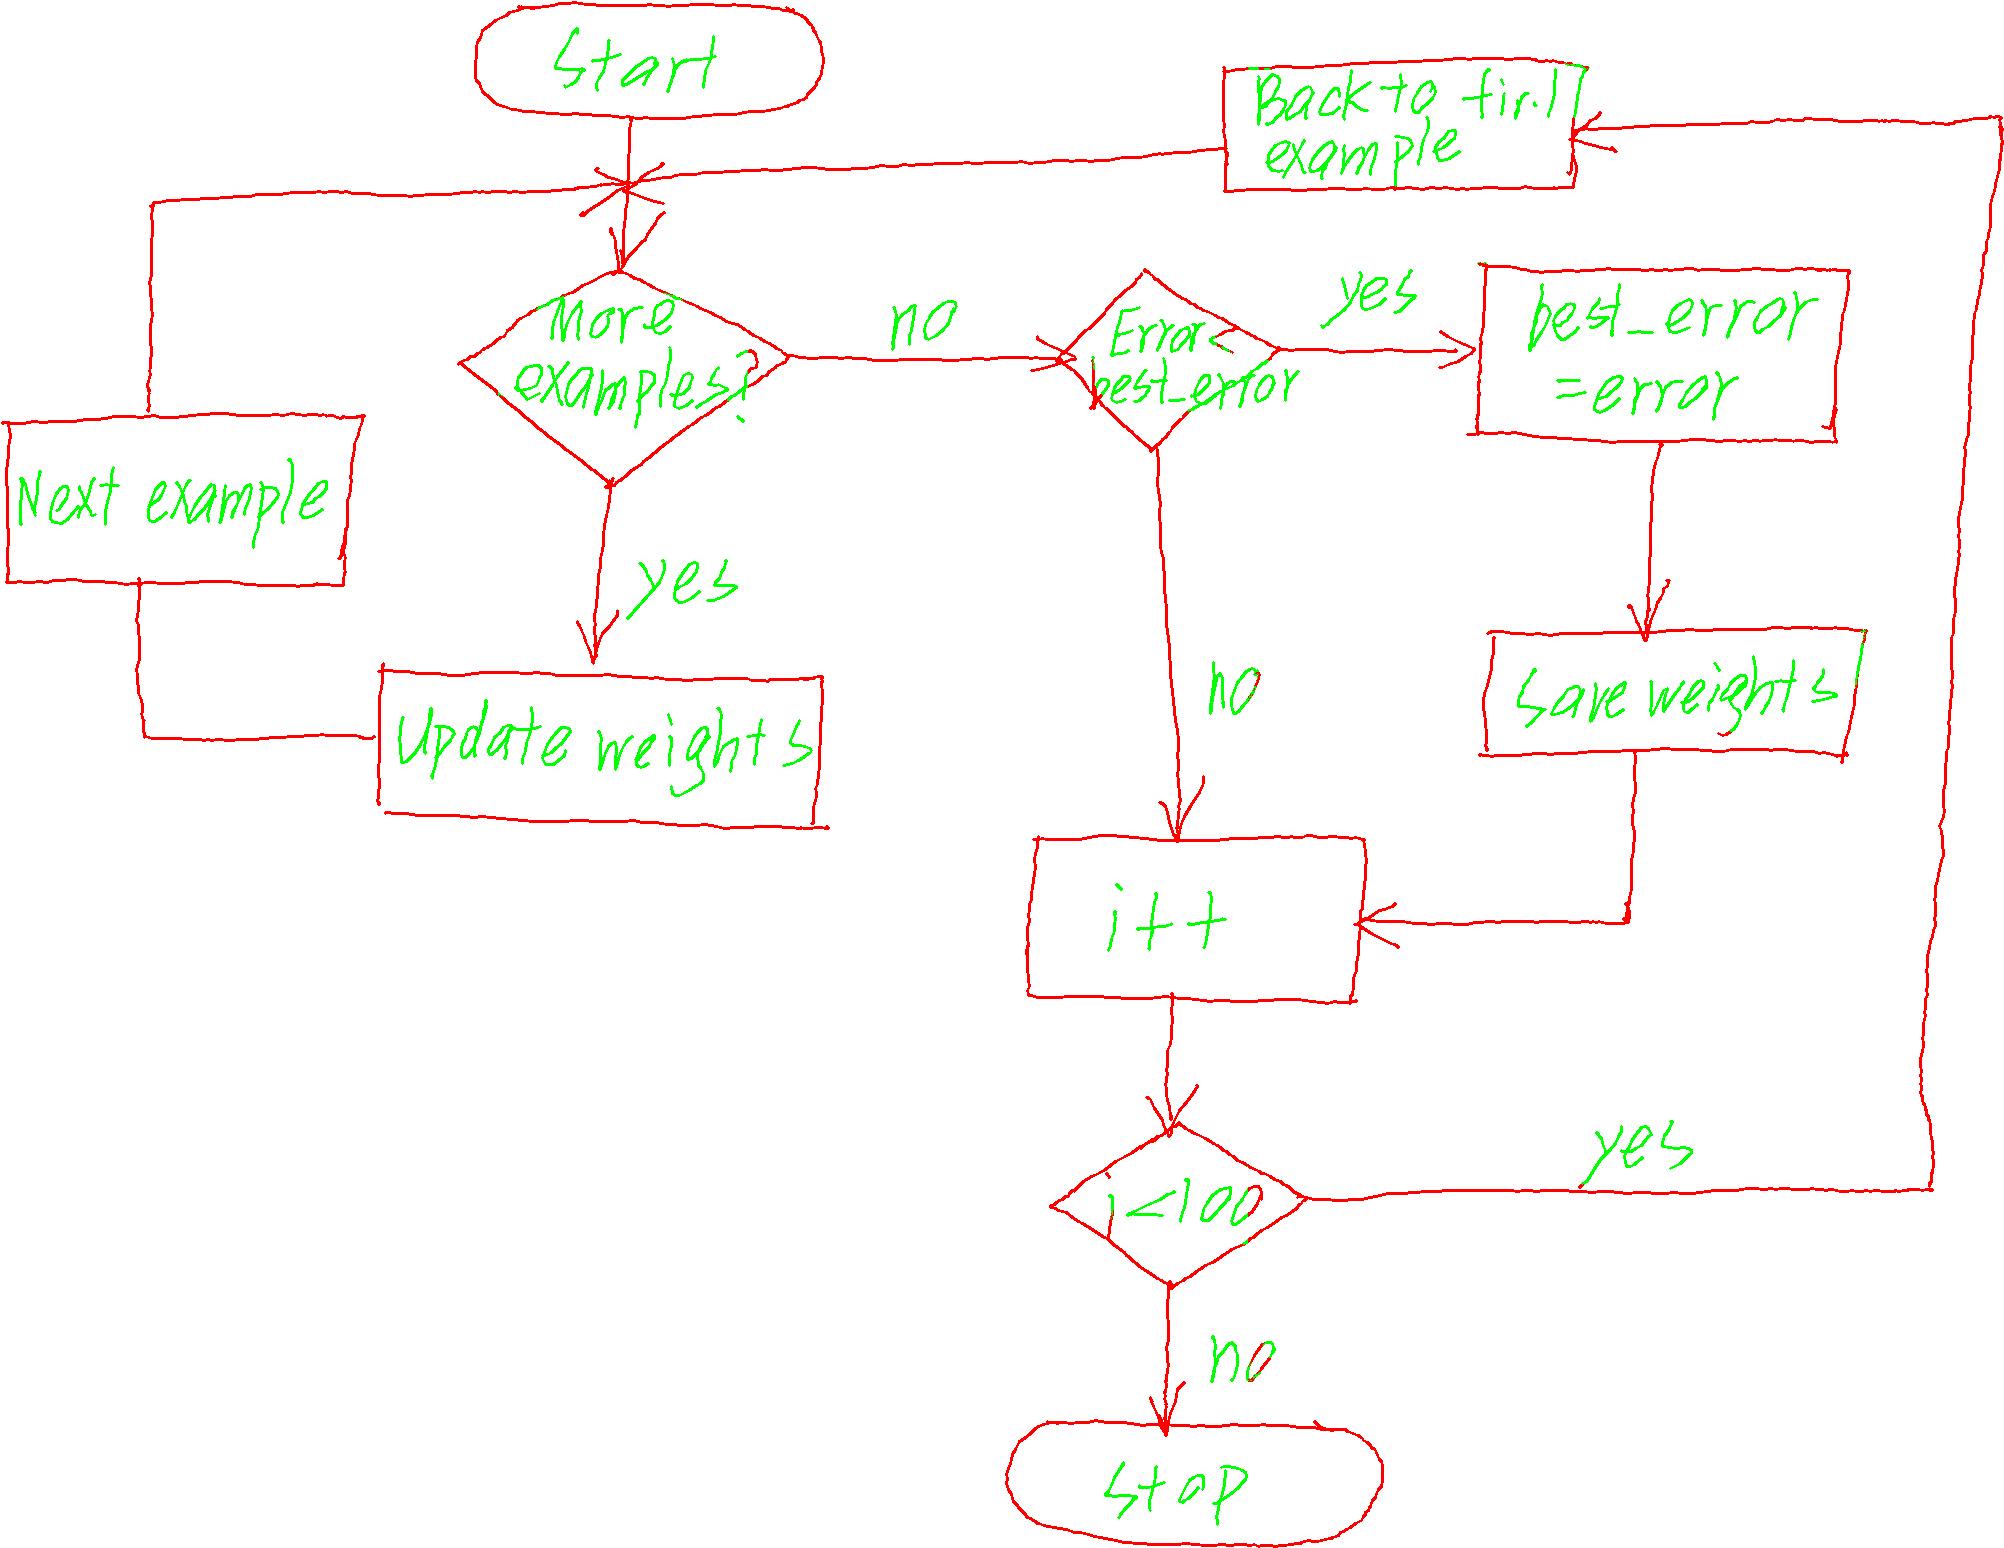 Start
Back to
example
More
examples?
no
Error<
best_error
yes
best_error
=error
Next example
yes
Update weights
no
Save weights
i++
i<100
yes
no
Stop